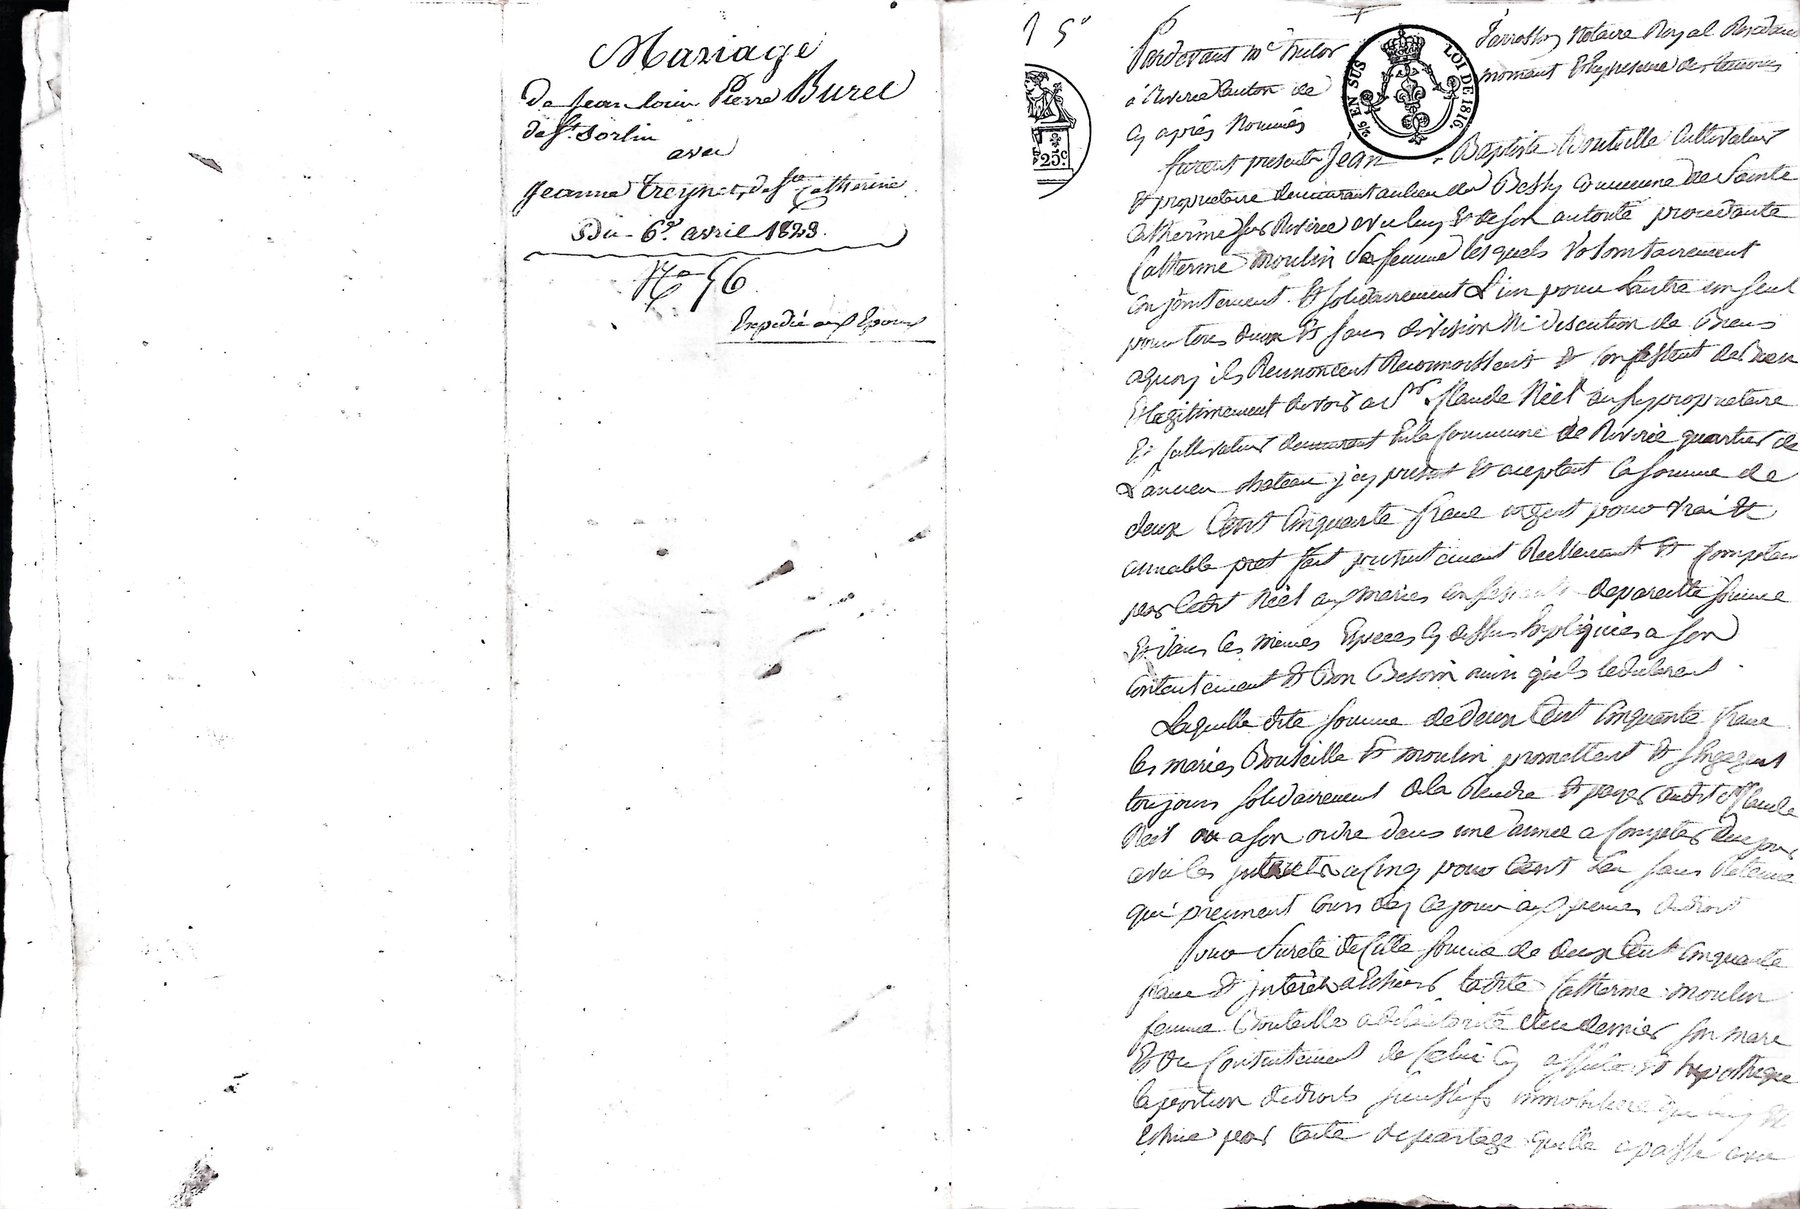 Mariage
De Jean Louis Pierre Buret
de St. Sorlin
avec
Jeanne Treynet, de Ste Catherine
Du 6e. avril 1823.
N° 56
Expedié aux Epoux
15°
25c.
EN SUS
LOI DE 1816.
Pardevant Me
Notaire Royal
à Riverie Canton de
mornant Et en presence des temoins
Cy après Nommés
furent presents Jean Baptiste Bouteille Cultivateur
Et proprietaire demeurant au lieu du Bessy Commune de Sainte
Catherine sur Riverie avec luy Et de son autorité procedante
Catherine moulin Sa femme lesquels Volontairement
Conjointement Et solidairement L'un pour L'autre un seul
pour tous deux Et sans division Ni discution de Biens
aquoy ils Renoncent Reconnoissent Et Confessent de Bien
Et legitimement devoir a Sr. Claude Réel proprietaire
Et Cultivateur demurant En la Commune de Riverie quartier de
L'ancien chateau j cy present Et aceptant la somme de
deux Cent Cinquante franc argent pour vrai Et
aimable pret fait presentement Réellement Et Comptau
par ledit Réel aux mariés de pareille somme
Et dans les mêmes Especes Cy dessus Expliquées a son
Contentement Et Bon Besoin ainsi qu'ils le declarent.
Laquelle dite somme de deux Cent Cinquante franc
les mariés Bouteille Et moulin promettent Et s'Engagent
toujours solidairement de la Rendre Et payer audit Sr Claude
Réel ou a son ordre dans une année a Compter de ce jour
avec les interets a Cinq pour Cent L'an sans Retenue
qui prennent Cours des ce jour aux peines de droit
Pour Sureté de Cette somme de deux Cent Cinquante
franc Et interêts a Echoir ladite Catherine moulin
femme Bouteille de l'autorité de ce dernier son mari
Et du Consentement de Celui Cy Et hypothèque
la portion de droits immobiliers
Echue par l'acte de partage qu'elle a passé avec